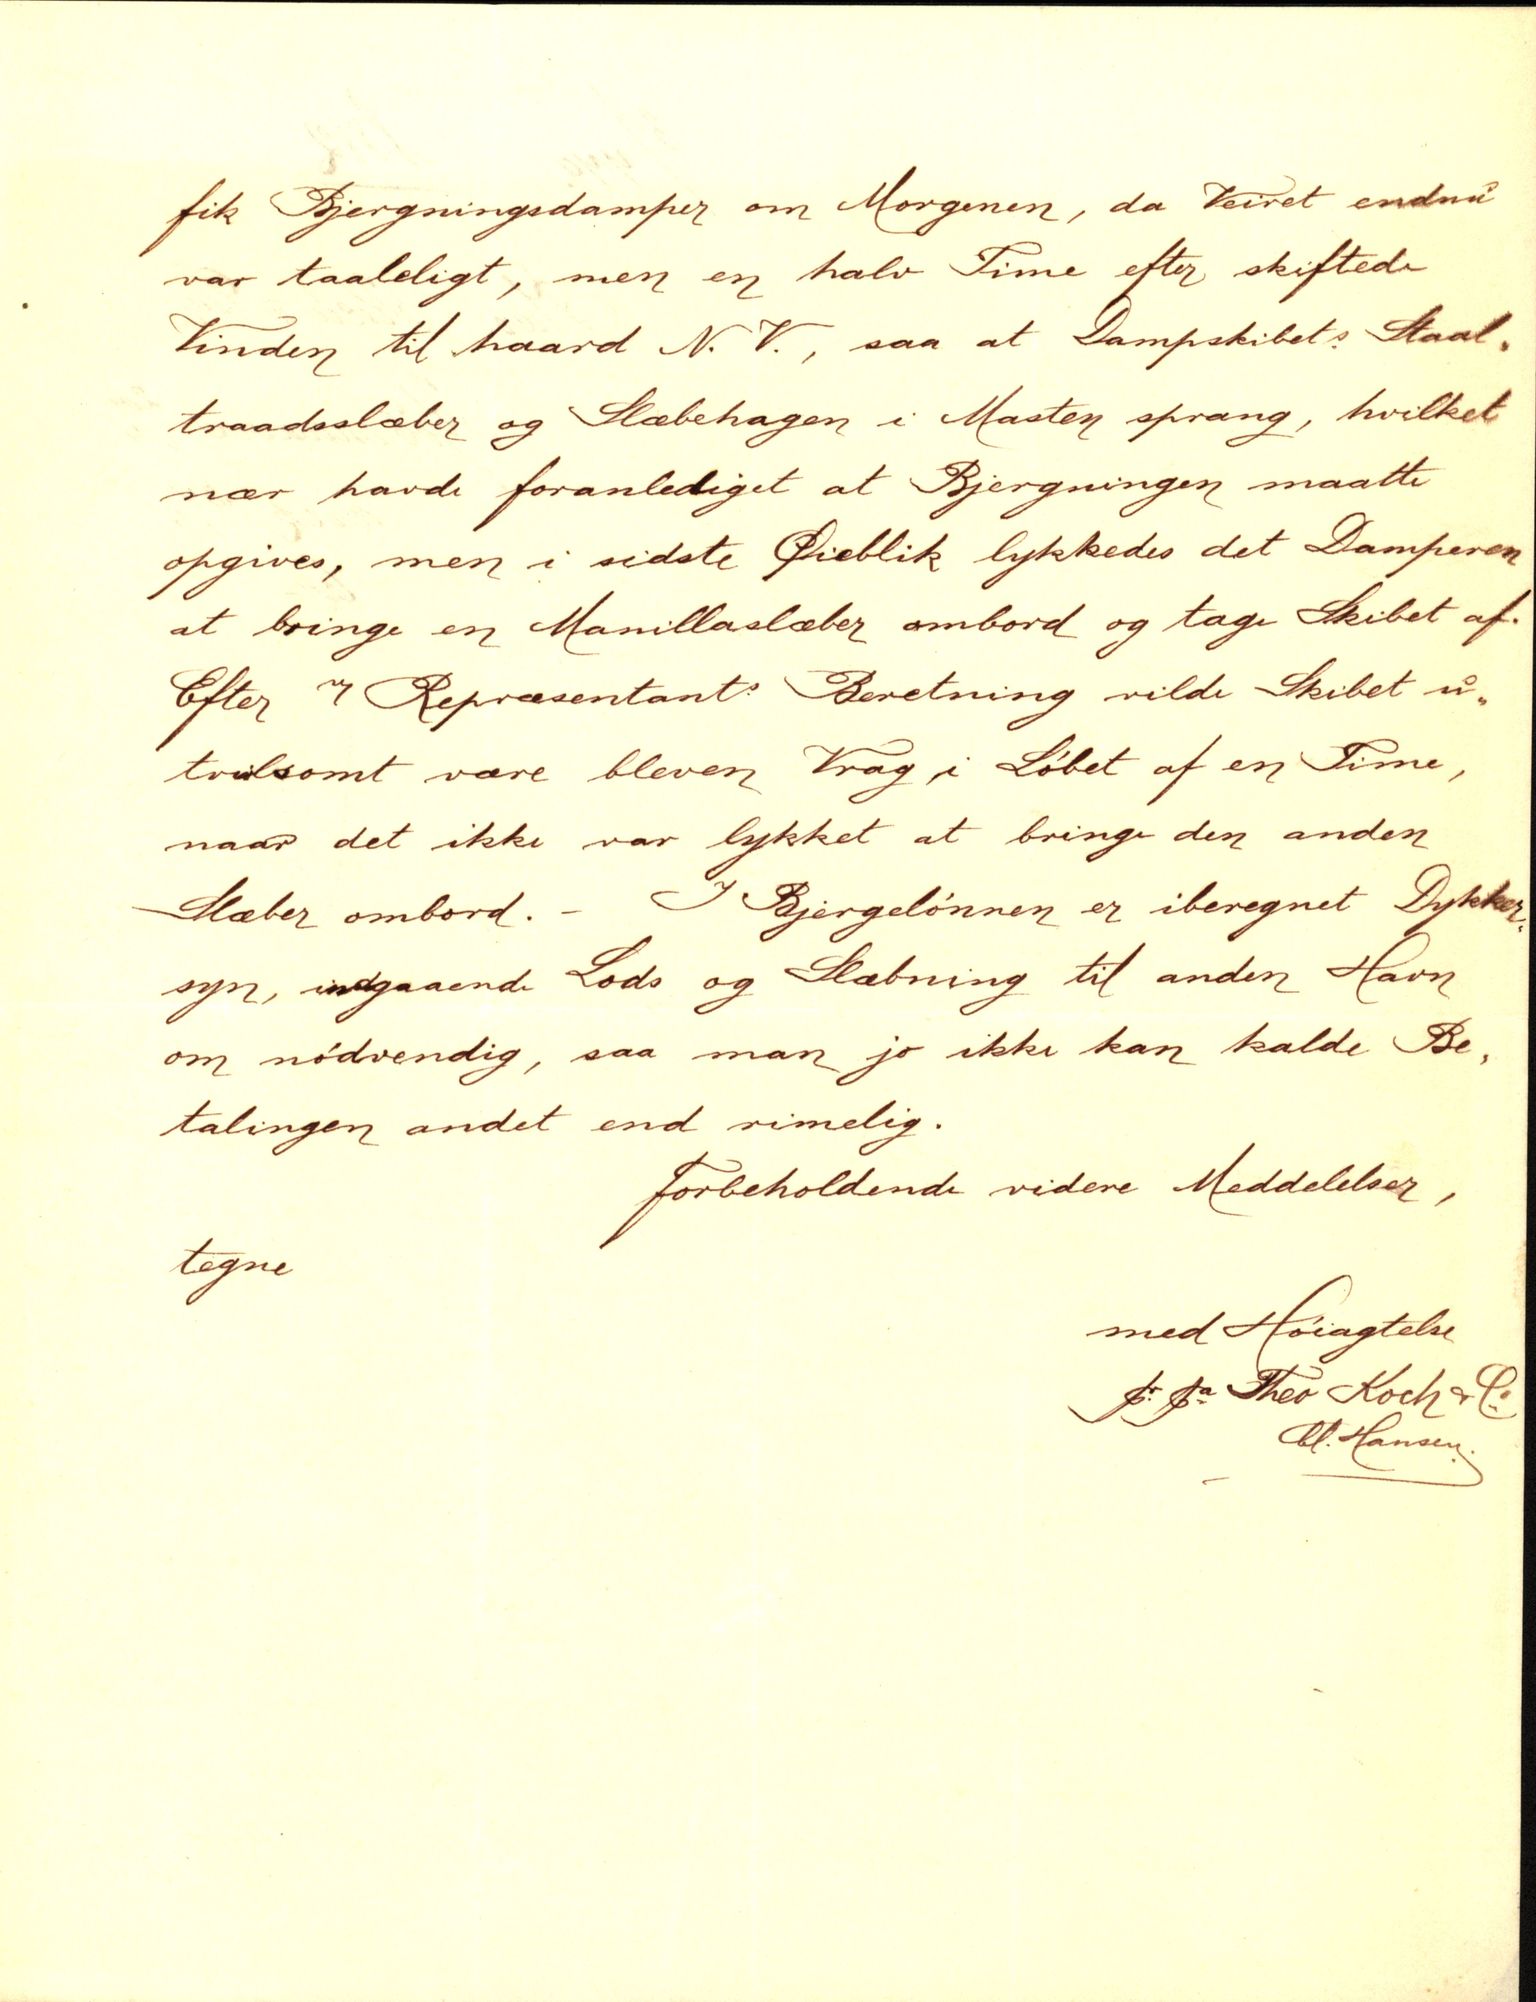 fik Bjergningsdamper om Morgenen, da Veiret endnu
var taaleligt, men en halv Time efter skiftede
Vinden til haard N. V., saa at Dampskibets Staal-
traadsslæber og Slæbehagen i Masten sprang, hvilket
nær havde foranlediget at Bjergningen maatte
opgives, men i sidste Øieblik lykkedes det Damperen
at bringe en Manillaslæber ombord og tage Skibet af.
Efter Repræsentants Beretning vilde Skibet u-
tvilsomt være bleven Vrag i Løbet af en Time,
naar det ikke var lykket at bringe den anden
Slæber ombord. - I Bjergelønnen er iberegnet Dykker-
syn, indgaaende Lods og Slæbning til anden Havn
om nødvendig, saa man jo ikke kan kalde Be-
talingen andet end rimelig.
Forbeholdende videre Meddelelser,
tegne
med Høiagtelse
pr. pa Theo Koch & Co
Cl. Hansen.